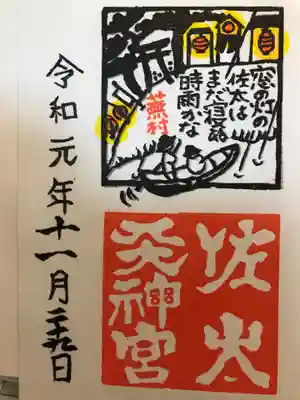 窓の灯の
佐太は
まだ寝ぬ
時雨かな
蕪村
佐太
天神宮
令和元年十一月二十九日